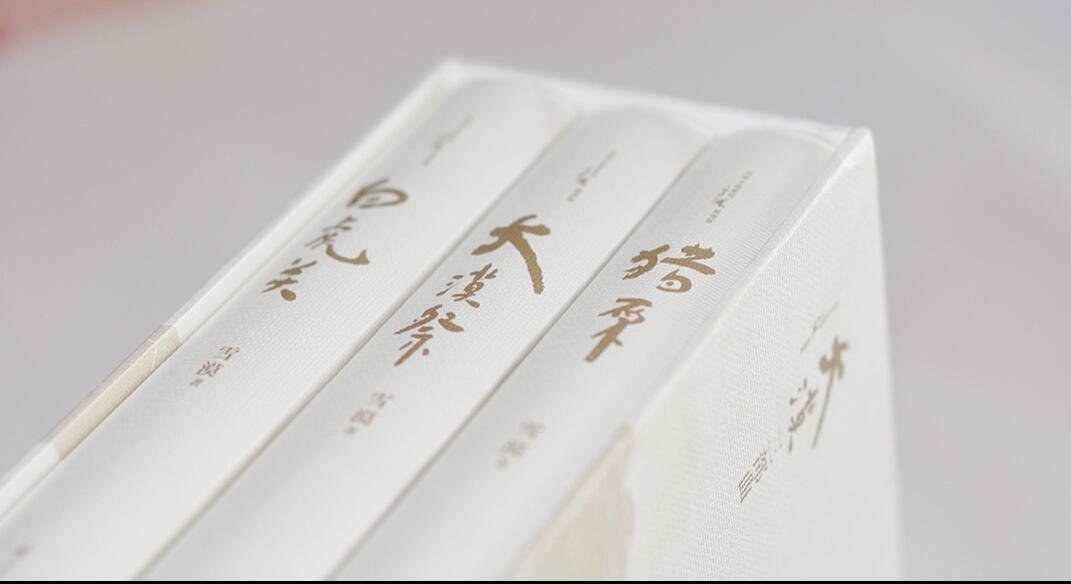 白虎关
雪漠
著
大漠祭
雪漠
著
猎原
雪漠
著
大漠
三部曲